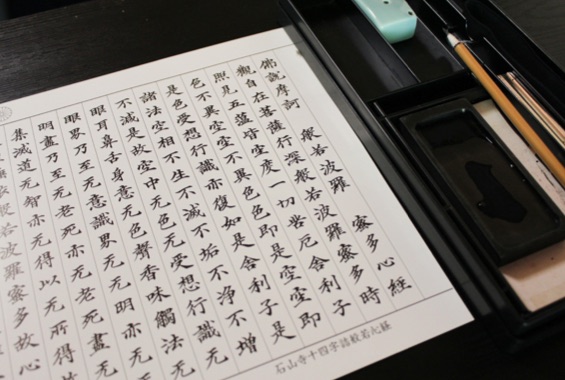 佛說摩訶般若波羅蜜多心經
觀自在菩薩行深般若波羅蜜多時
照見五蘊皆空度一切苦厄舍利子
色不異空空不異色色即是空空即
是色受想行識亦復如是舍利子是
諸法空相不生不滅不垢不净不增
不減是故空中无色无受想行識无
眼耳鼻舌身意无色聲香味觸法无
眼界乃至无意識界无无明亦无
明盡乃至无老死亦无老死盡无
集滅道无智亦无得以无所得
般若波羅蜜多故心
石山寺十四字詰般若心経